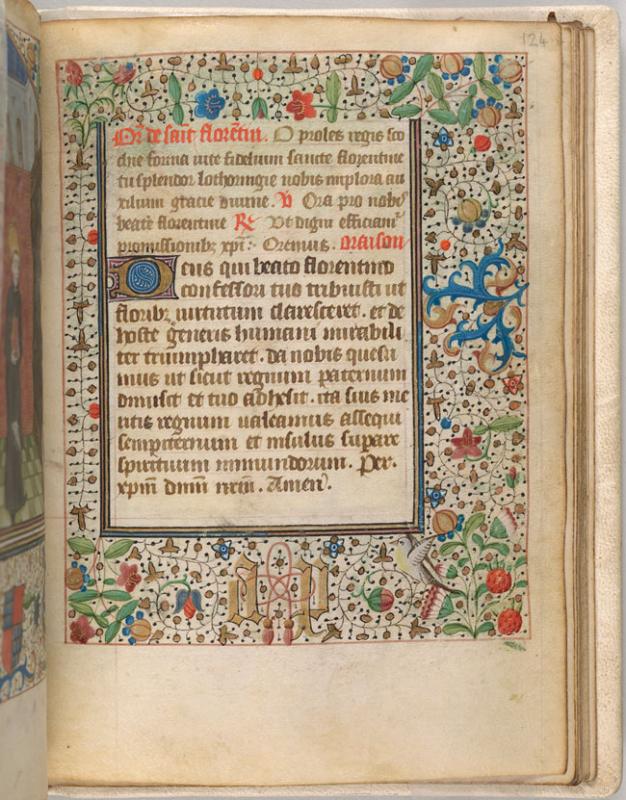 124
Or̃ de sait florẽtin. O proles regis sco
cie forma vite fidelium sancte florentine
tu splendor lothoringie nobis implora au
xilium gracie divine. V̉ Ora pro nobis
beate florentine R̉ Vt digni efficiam̃
promissionibꝫ xp̃i: Oremus. Oraison
Deus qui beato florentino
confessori tuo tribuisti ut
floribꝫ uirtutum claresceret. et de
hoste generis humani mirabili
ter triumpharet. da nobis quesu
mus ut sicut regnum paternum
dimisit et tuo adhesit. ita sius me
ritis regnum ualeamus assequi
sempiternum et insulus supare
spirituum inmundorum. Per.
xp̃m dñm nr̃m. Amen.